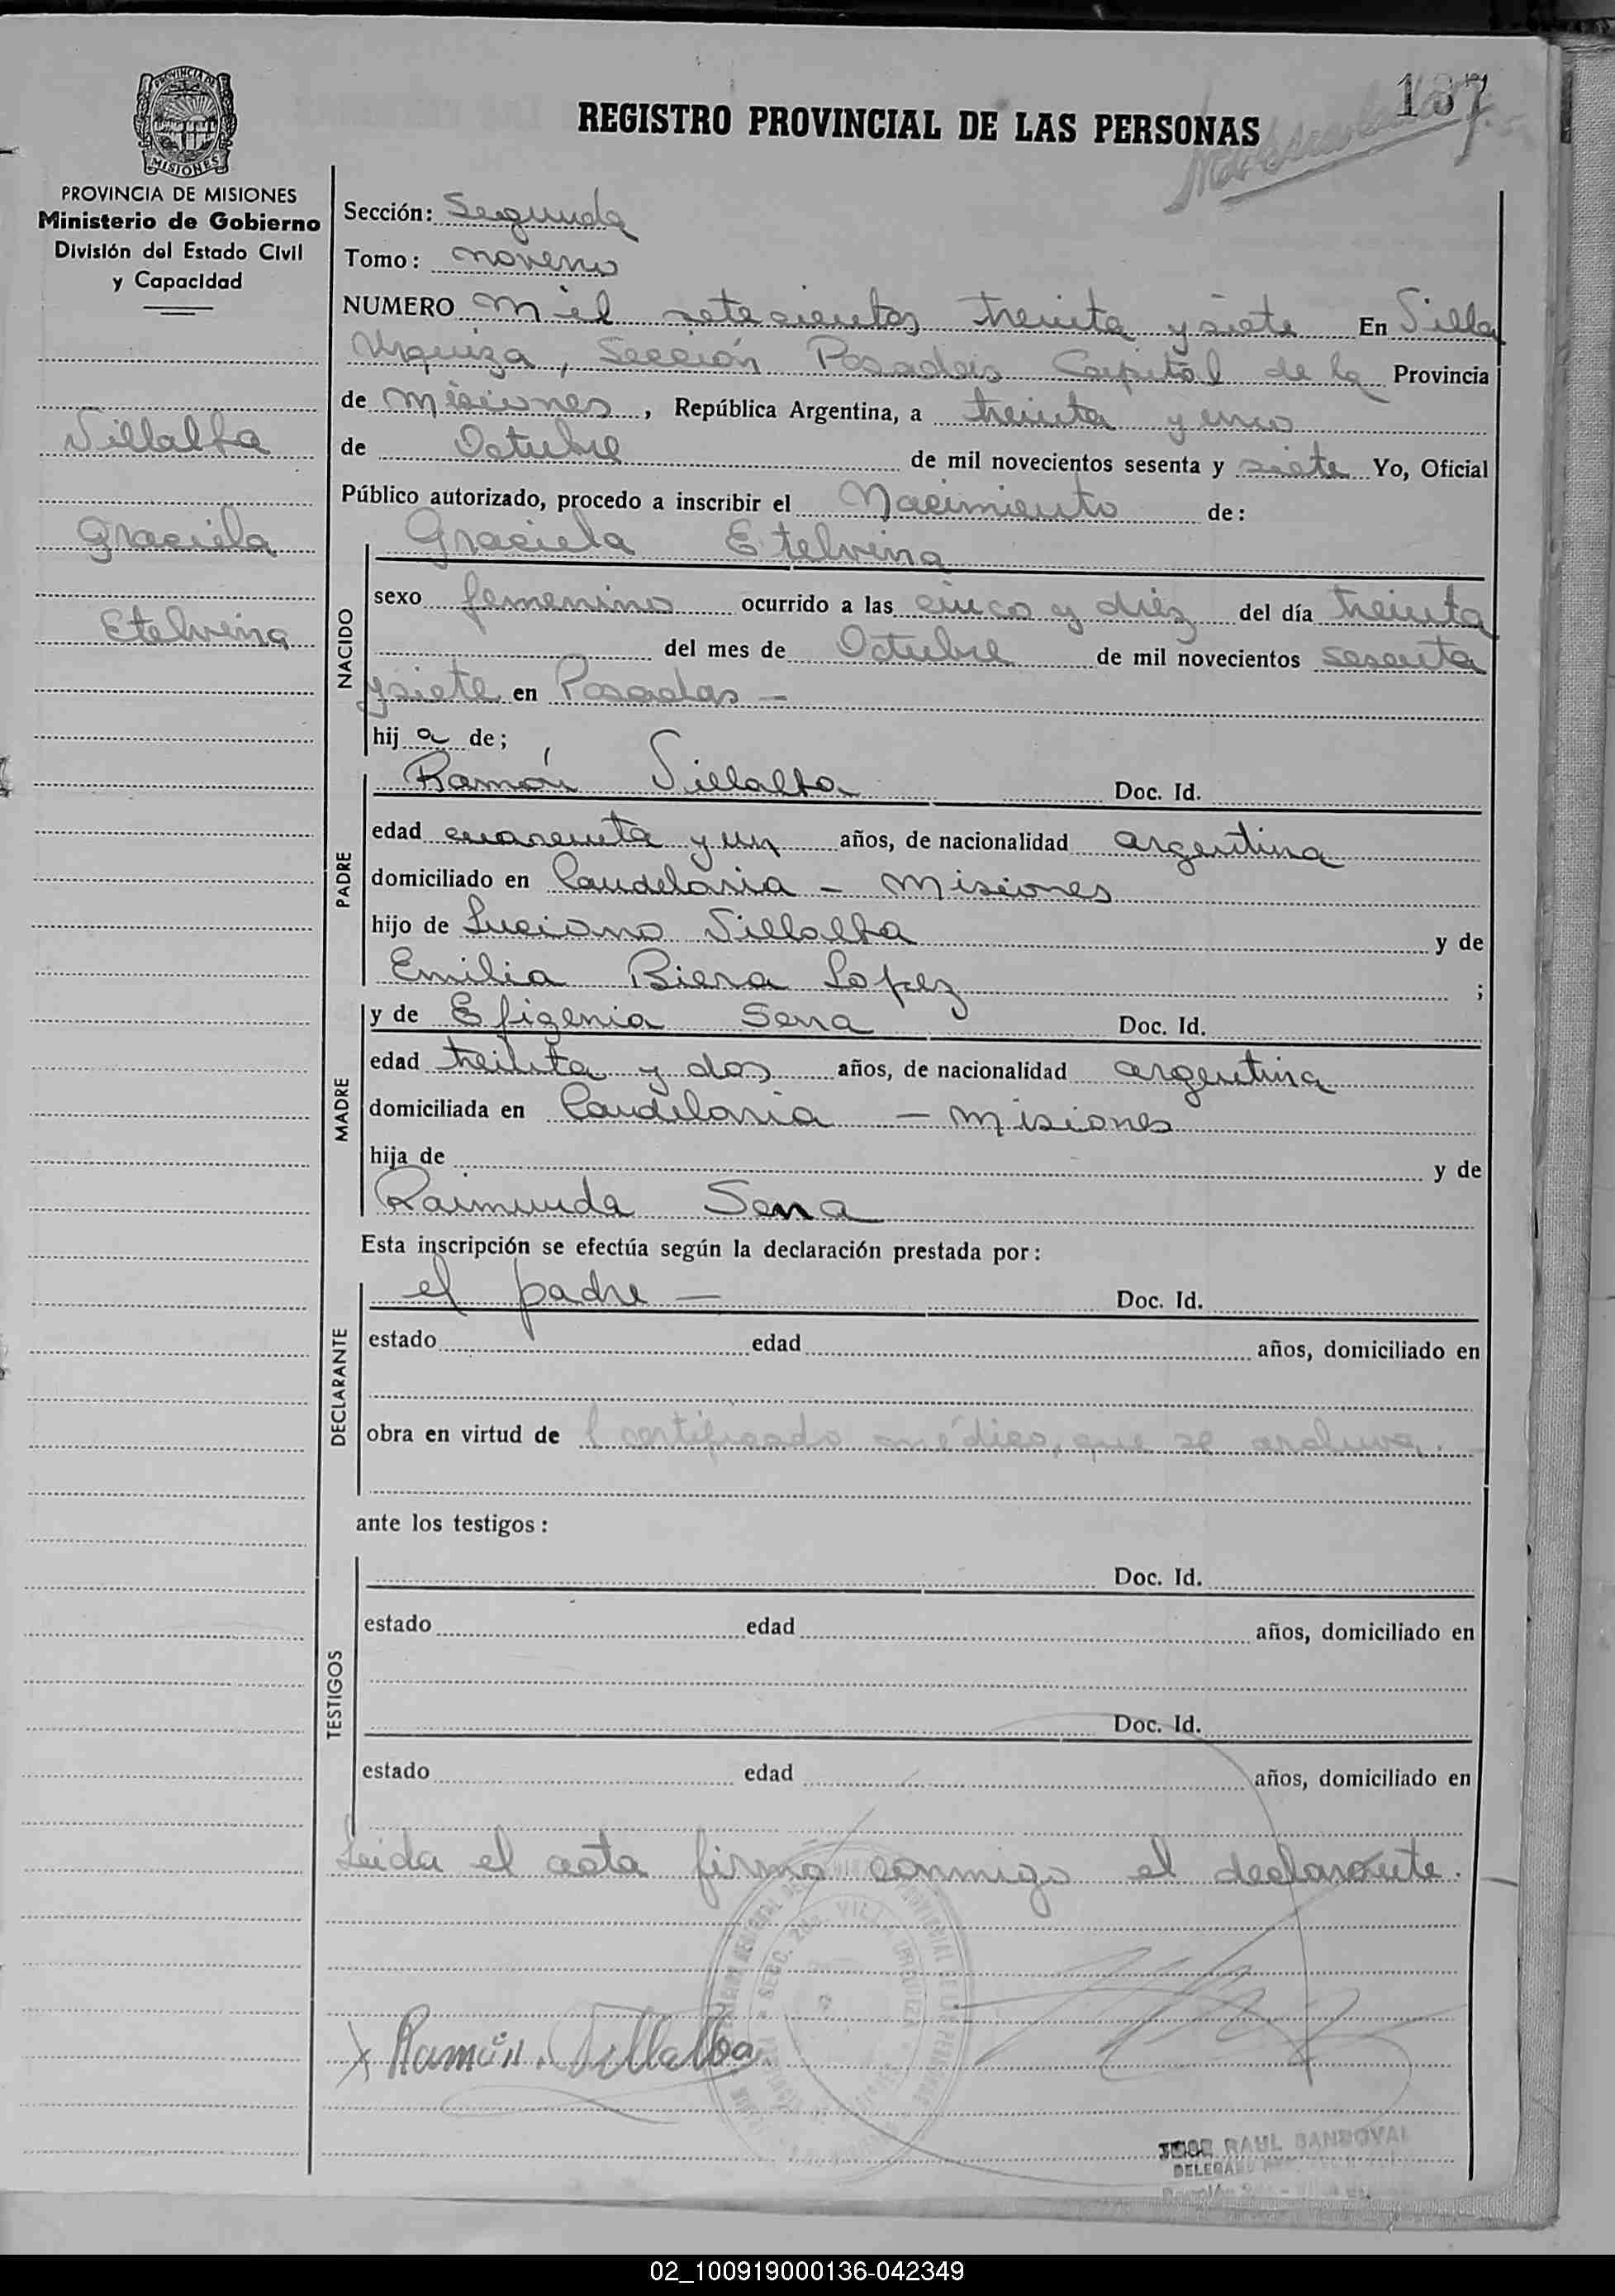 137
REGISTRO PROVINCIAL DE LAS PERSONAS
PROVINCIA DE
MISIONES
PROVINCIA DE MISIONES
Ministerio de Gobierno
División del Estado Civil
y Capacidad
Villalba
Graciela
Etelvina
Sección: Segunda
Tomo: noveno
NUMERO mil setecientos treinta y siete En Villa
Urquiza, Sección Posadas Capital de la Provincia
de Misiones, República Argentina, a treinta y uno
de Octubre de mil novecientos sesenta y siete Yo, Oficial
Público autorizado, procedo a inscribir el Nacimiento de:
Graciela Etelvina
NACIDO
sexo femenino ocurrido a las cinco y diez del día treinta
del mes de Octubre de mil novecientos sesenta
y siete en Posadas -
hij a de;
PADRE
Ramón Villalba Doc. Id.
edad cuarenta y un años, de nacionalidad argentina
domiciliado en Candelaria - Misiones
hijo de Luciano Villalba y de
Emilia Biera Lopez ;
MADRE
y de Efigenia Sena Doc. Id.
edad treinta y dos años, de nacionalidad argentina
domiciliada en Candelaria - Misiones
hija de y de
Raimunda Sena
Esta inscripción se efectúa según la declaración prestada por:
DECLARANTE
el padre - Doc. Id.
estado edad años, domiciliado en
obra en virtud de l certificado médico, que se archiva.
ante los testigos:
TESTIGOS
Doc. Id.
estado edad años, domiciliado en
Doc. Id.
estado edad años, domiciliado en
Leida el acta firma conmigo el declarante. -
x Ramón Villalba
RAUL SANDOVAL
02_100919000136-042349